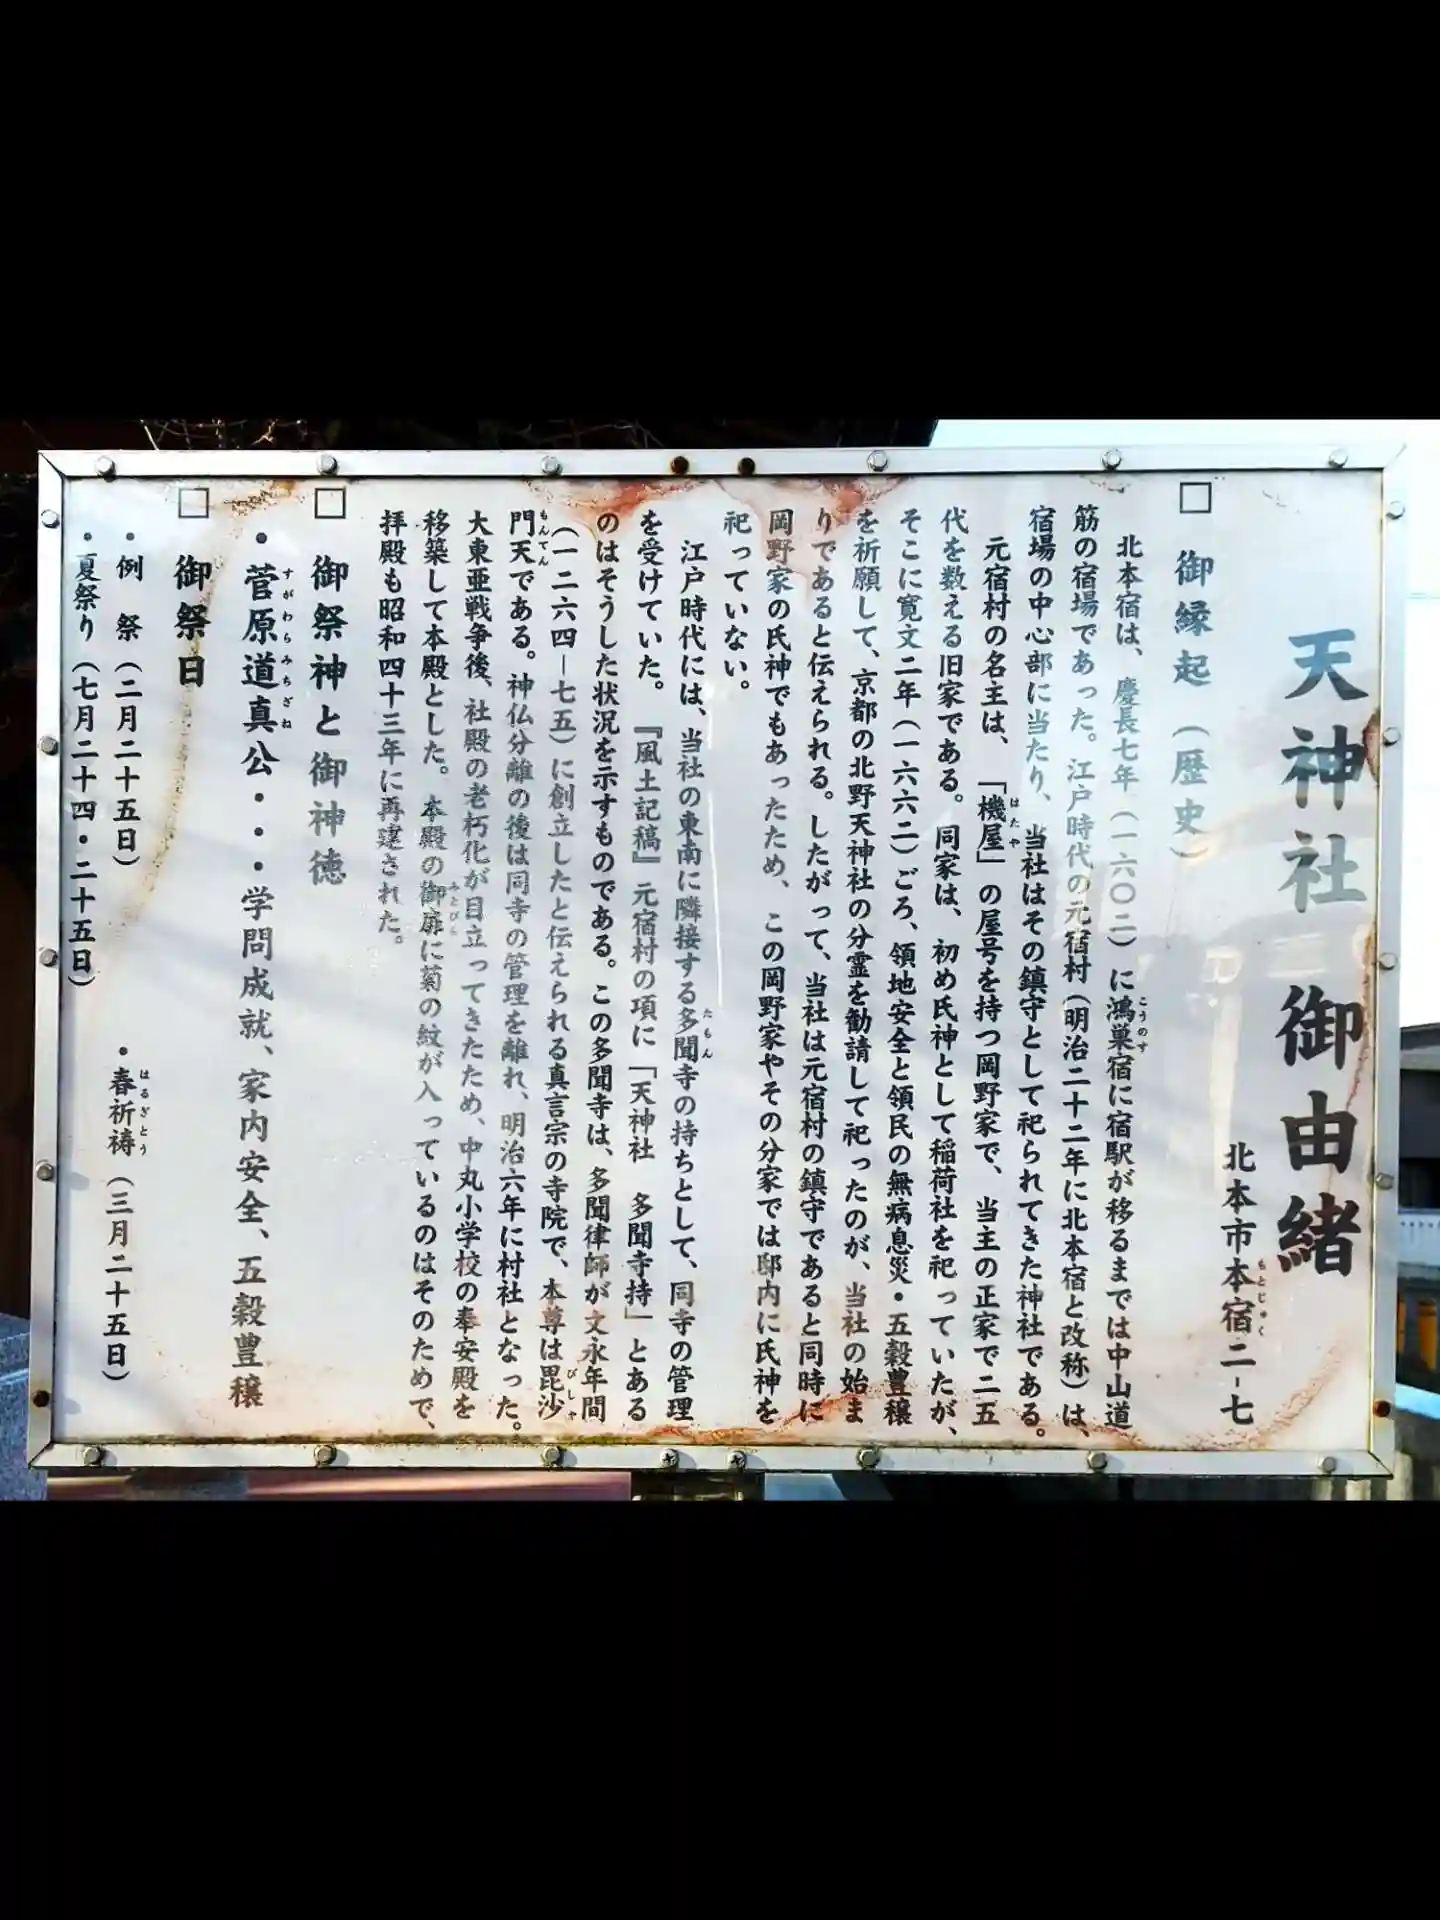 天神社 御由緒
北本市本宿二-七
もとじゅく
□ 御縁起(歴史)
北本宿は、慶長七年(一六〇二)に鴻巣宿に宿駅が移るまでは中山道
こうのす
筋の宿場であった。江戸時代の元宿村(明治二十二年に北本宿と改称)は、
宿場の中心部に当たり、当社はその鎮守として祀られてきた神社である。
元宿村の名主は、「機屋」の屋号を持つ岡野家で、当主の正家で二五
はたや
代を数える旧家である。同家は、初め氏神として稲荷社を祀っていたが、
そこに寛文二年(一六六二)ごろ、領地安全と領民の無病息災・五穀豊穣
を祈願して、京都の北野天神社の分霊を勧請して祀ったのが、当社の始ま
りであると伝えられる。したがって、当社は元宿村の鎮守であると同時に
岡野家の氏神でもあったため、この岡野家やその分家では邸内に氏神を
祀っていない。
江戸時代には、当社の東南に隣接する多聞寺の持ちとして、同寺の管理
たもん
を受けていた。『風土記稿』元宿村の項に「天神社 多聞寺持」とある
のはそうした状況を示すものである。この多聞寺は、多聞律師が文永年間
(一二六四-七五)に創立したと伝えられる真言宗の寺院で、本尊は毘沙
びしゃ
門天である。神仏分離の後は同寺の管理を離れ、明治六年に村社となった。
もんてん
大東亜戦争後、社殿の老朽化が目立ってきたため、中丸小学校の奉安殿を
移築して本殿とした。本殿の御扉に菊の紋が入っているのはそのためで、
みとびら
拝殿も昭和四十三年に再建された。
□ 御祭神と御神徳
・菅原道真公・・・学問成就、家内安全、五穀豊穣
すがわらみちざね
□ 御祭日
・例 祭(二月二十五日) ・春祈祷(三月二十五日)
はるぎとう
・夏祭り(七月二十四・二十五日)